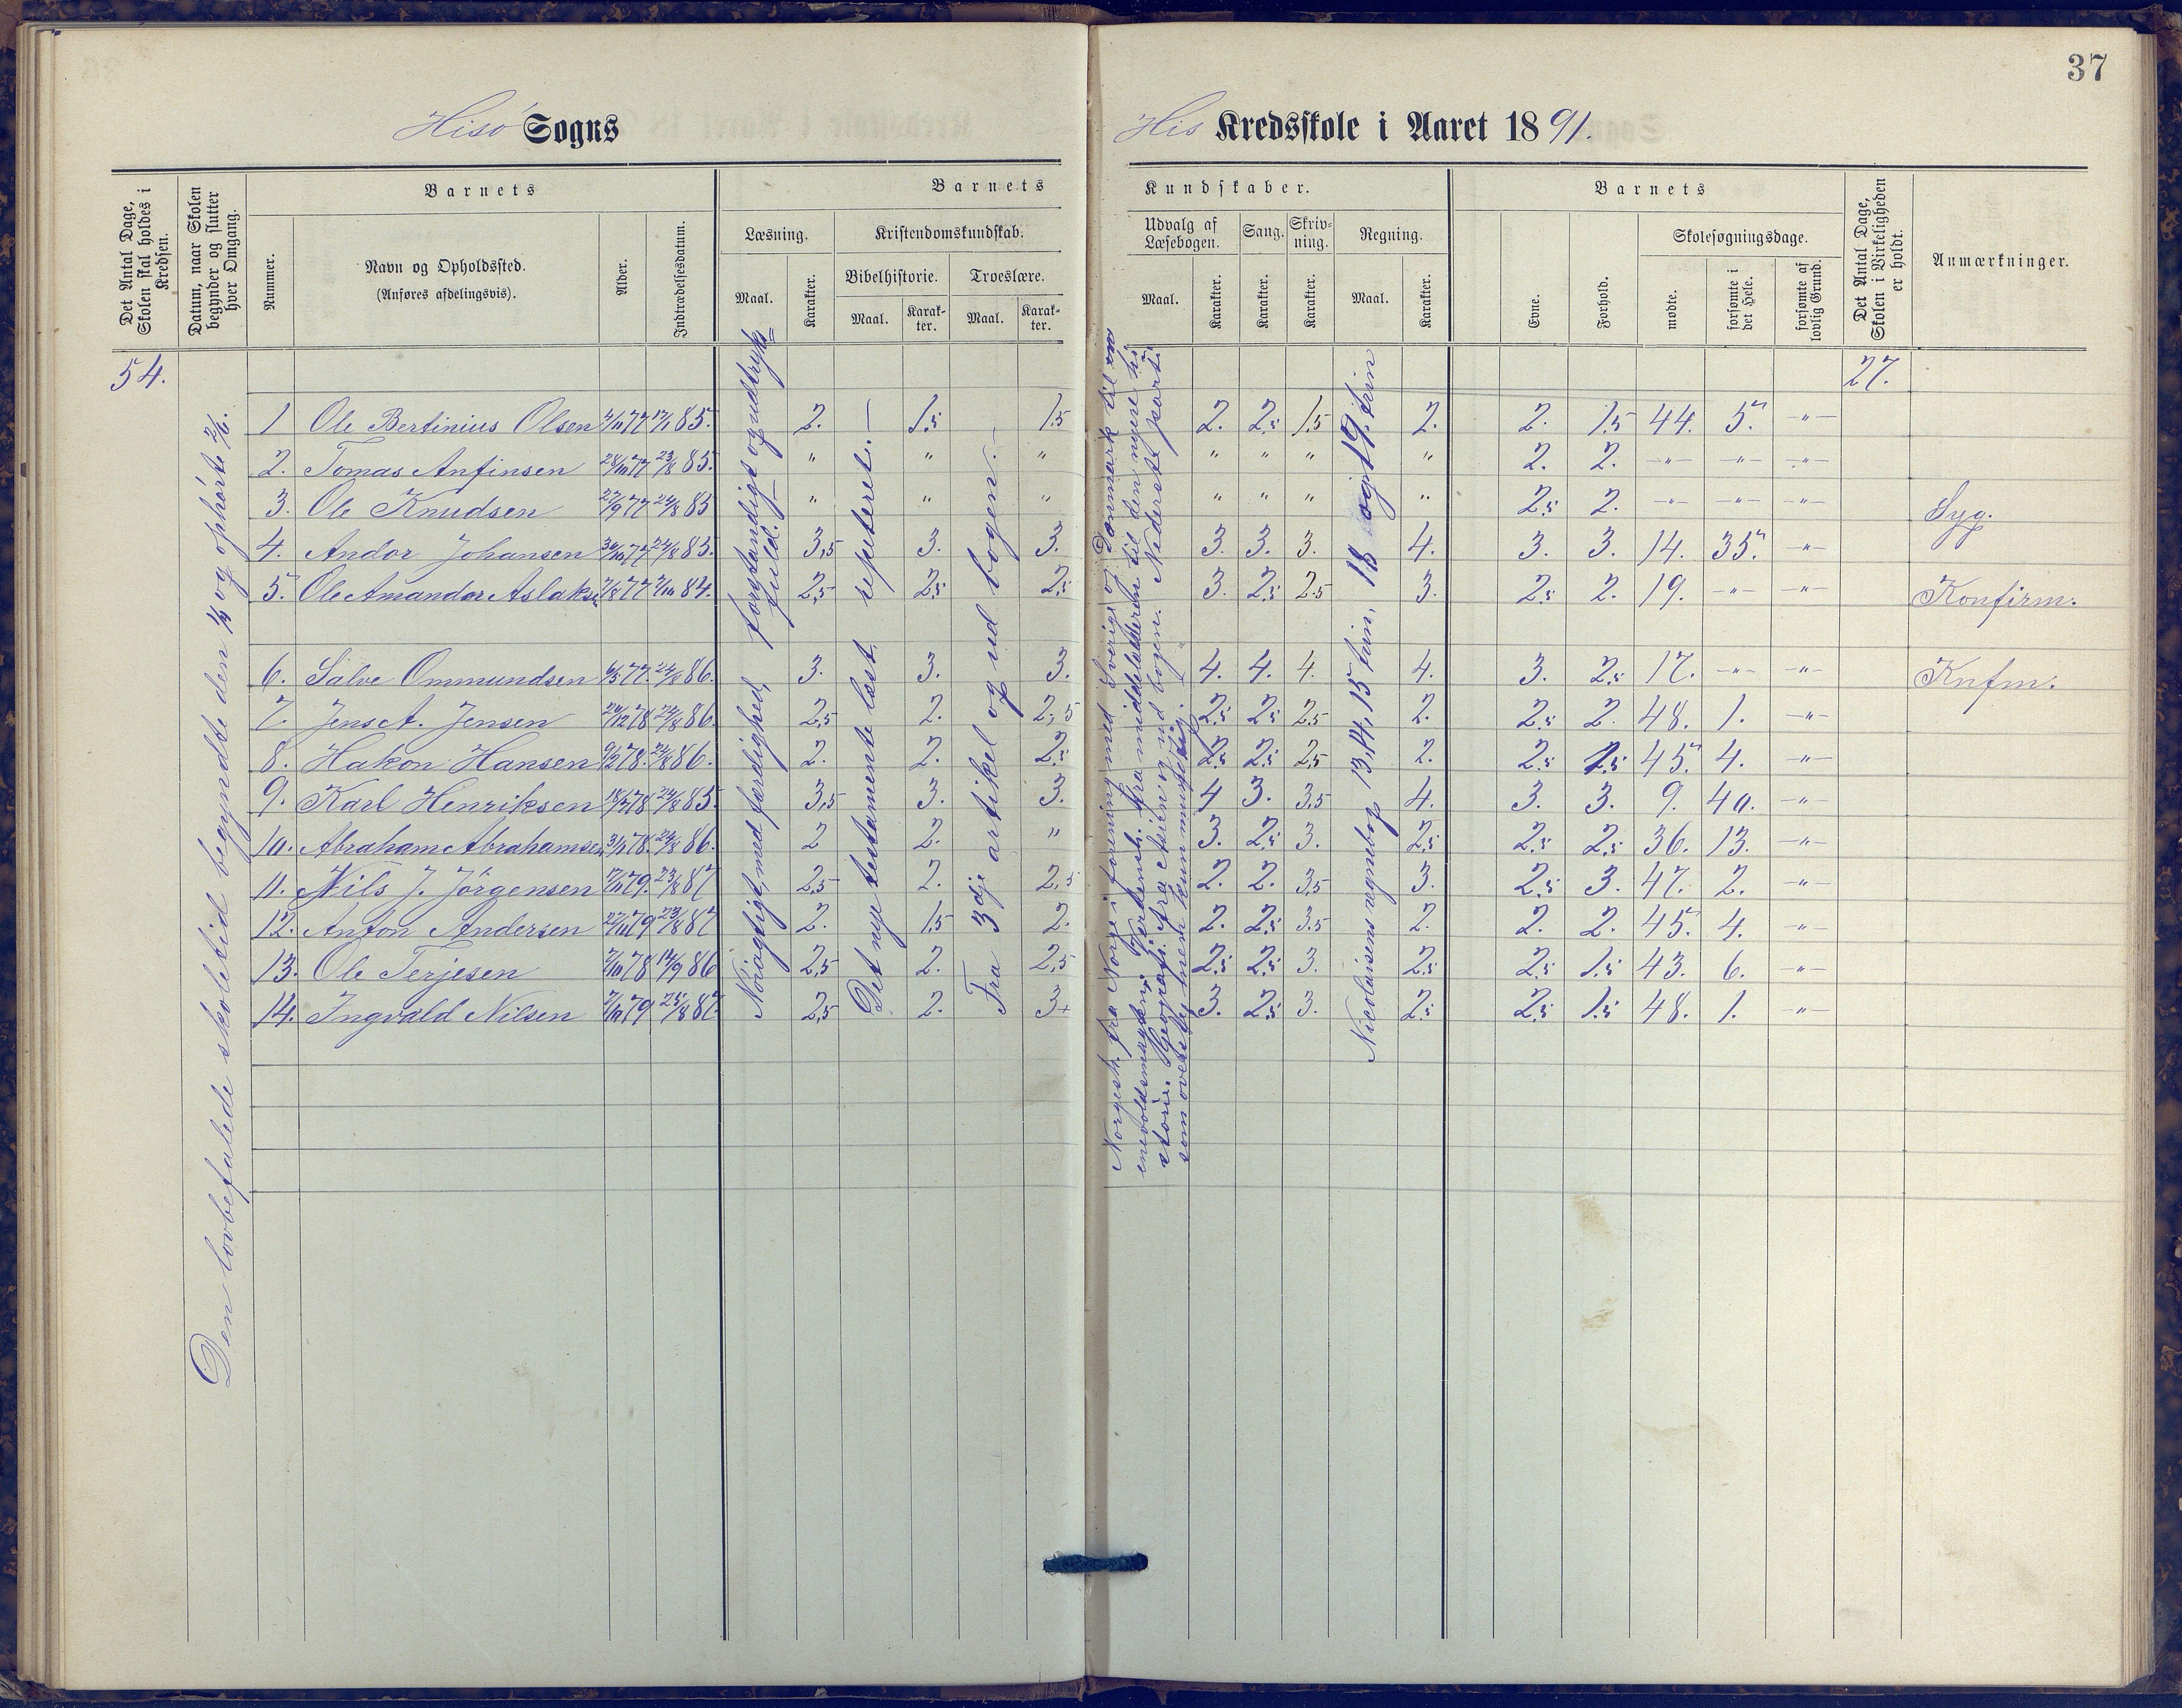 37
Hisö Sogns
His Kredsskole i Aaret 1891.
Det Antal Dage, Skolen skal holdes i Kredsen.
Datum, naar Skolen begynder og slutter hver Omgang.
Barnets
Nummer.
Navn og Opholdssted.
(Anføres afdelingsvis).
Alder.
Indtrædelsesdatum.
Barnets Kundskaber.
Læsning.
Maal.
Karakter.
Kristendomskundskab.
Bibelhistorie.
Maal.
Karakter.
Troeslære.
Maal.
Karakter.
Udvalg af Læsebogen.
Maal.
Karakter.
Sang.
Karakter.
Skrivning.
Karakter.
Regning.
Maal.
Karakter.
Barnets
Evne.
Forhold.
Skolesøgningsdage.
mødte.
forsømte i det Hele.
forsømte af lovlig Grund.
Det Antal Dage, Skolen i Virkeligheden er holdt.
Anmærkninger.
54.
27.
Den lovbefalede skoletid begyndte den og ophørte
Nöiagtigt, med færdighed, forstandigt og udtryksfuld.
Det nye testamente læst, repeteret.
Fra 3dje artikel og ud bogen.
Norgesh. fra Norge i forening med Sverige og Danmark til
enevoldsmagten; Verdensh. fra middelalderen til den nyere hi
storie. Geografi: fra og ud bogen.
Nicolaisens regnebog 13, 14, 15 trin. 18 og 19. trin
1 Ole Bertinius Olsen 4/11 77 17/1 85. 2. 1.5 1.5 2. 2.5 1.5 2. 2. 1.5 44. 5. -"-
2. Tomas Anfinsen 28/10 77 23/8 85. " " " " " " " 2. 2. -"- -"- -"-
3. Ole Knudsen 27/9 77 24/8 85 " " " " " " " 2.5 2. -"- -"- -"- Syg.
4. Andor Johansen 30/10 77 24/8 85. 3,5 3. 3. 3. 3. 3. 4. 3. 3. 14. 35. -"-
5. Ole Amandor Aslaks. 7/8 77 2/10 84. 2,5 2.5 2.5 3. 2.5 2.5 3. 2.5 2. 19. -"- -"- Konfirm.
6. Salve Ommundsen 6/5 77. 24/8 86. 3. 3. 3. 4. 4. 4. 4. 3. 2.5 17. -"- -"- Knfm.
7. Jens A. Jensen 20/12 78 24/8 86. 2,5 2. 2,5 2.5 2.5 2.5 2. 2.5 2. 48. 1. -"-
8. Hakon Hansen 9/2 78. 24/8 86. 2. 2. 2.5 2.5 2.5 2.5 2. 2.5 1.5 45. 4. -"-
9. Karl Henriksen 18/7 78 24/8 85. 3,5 3. 3. 4 3. 3.5 4. 3. 3. 9. 40. -"-
10. Abraham Abrahamsen 3/1 78. 24/8 86. 2 2. " 3. 2.5 3. 2.5 2.5 2.5 36. 13. -"-
11. Nils J. Jörgensen 7/11 79. 23/8 87 2,5 2. 2,5 2. 2. 3.5 3. 2.5 3. 47. 2. -"-
12. Anton Andersen 27/11 79 23/8 87 2. 1.5 2. 2. 2.5 3.5 2. 2. 2. 45. 4. -"-
13. Ole Terjesen 7/10 78 14/9 86 2,5 2. 2,5 2.5 2.5 3. 2.5 2.5 1.5 43. 6. -"-
14. Ingvald Nilsen 7/11 79 25/8 87. 2,5 2. 3+ 3. 2.5 3. 2.5 2.5 1.5 48. 1. -"-